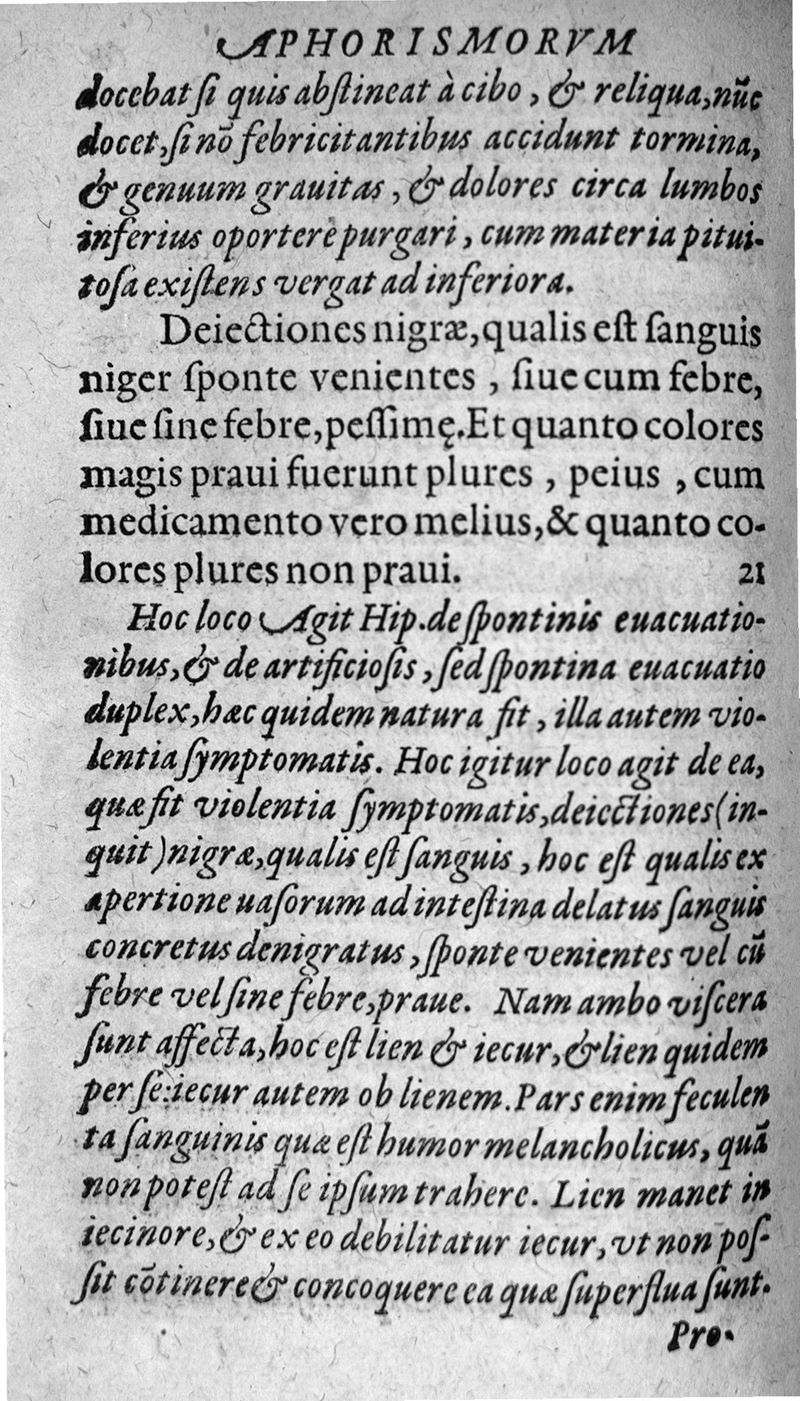 APHORISMORVM
docebat ſi quis abſtineat à cibo, & reliqua, nūc
docet, ſi nō febricitantibus accidunt tormina,
& genuum grauitas, & dolores circa lumbos
inferius oportere purgari, cum materia pitui-
toſa exiſtens vergat ad inferiora.
Deiectiones nigræ, qualis eſt ſanguis
niger ſponte venientes, ſiue cum febre,
ſiue ſine febre, peſſimę. Et quanto colores
magis praui fuerunt plures, peius, cum
medicamento vero melius, & quanto co-
lores plures non praui. 21
Hoc loco Agit Hip. de ſpontinis euacuatio-
nibus, & de artificioſis, ſed ſpontina euacuatio
duplex, hæc quidem natura fit, illa autem vio-
lentia ſymptomatis. Hoc igitur loco agit de ea,
quæ fit violentia ſymptomatis, deiectiones (in-
quit) nigræ, qualis eſt ſanguis, hoc eſt qualis ex
apertione uaſorum ad inteſtina delatus ſanguis
concretus denigratus, ſponte venientes vel cū
febre vel ſine febre, praue. Nam ambo viſcera
ſunt affecta, hoc eſt lien & iecur, & lien quidem
per ſe: iecur autem ob lienem. Pars enim feculen
ta ſanguinis quæ eſt humor melancholicus, quā
non poteſt ad ſe ipſum trahere. Lien manet in
iecinore, & ex eo debilitatur iecur, vt non poſ-
ſit cōtinere & concoquere ea quæ ſuperflua ſunt.
Pro-